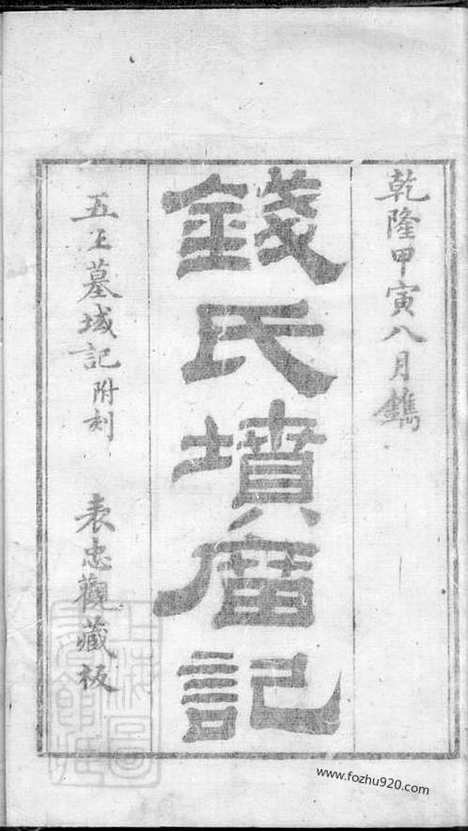 乾隆甲寅八月鐫
錢氏墳庿記
五王墓域記附刻 表忠觀藏板
上海圖
書館藏
www.fozhu920.com